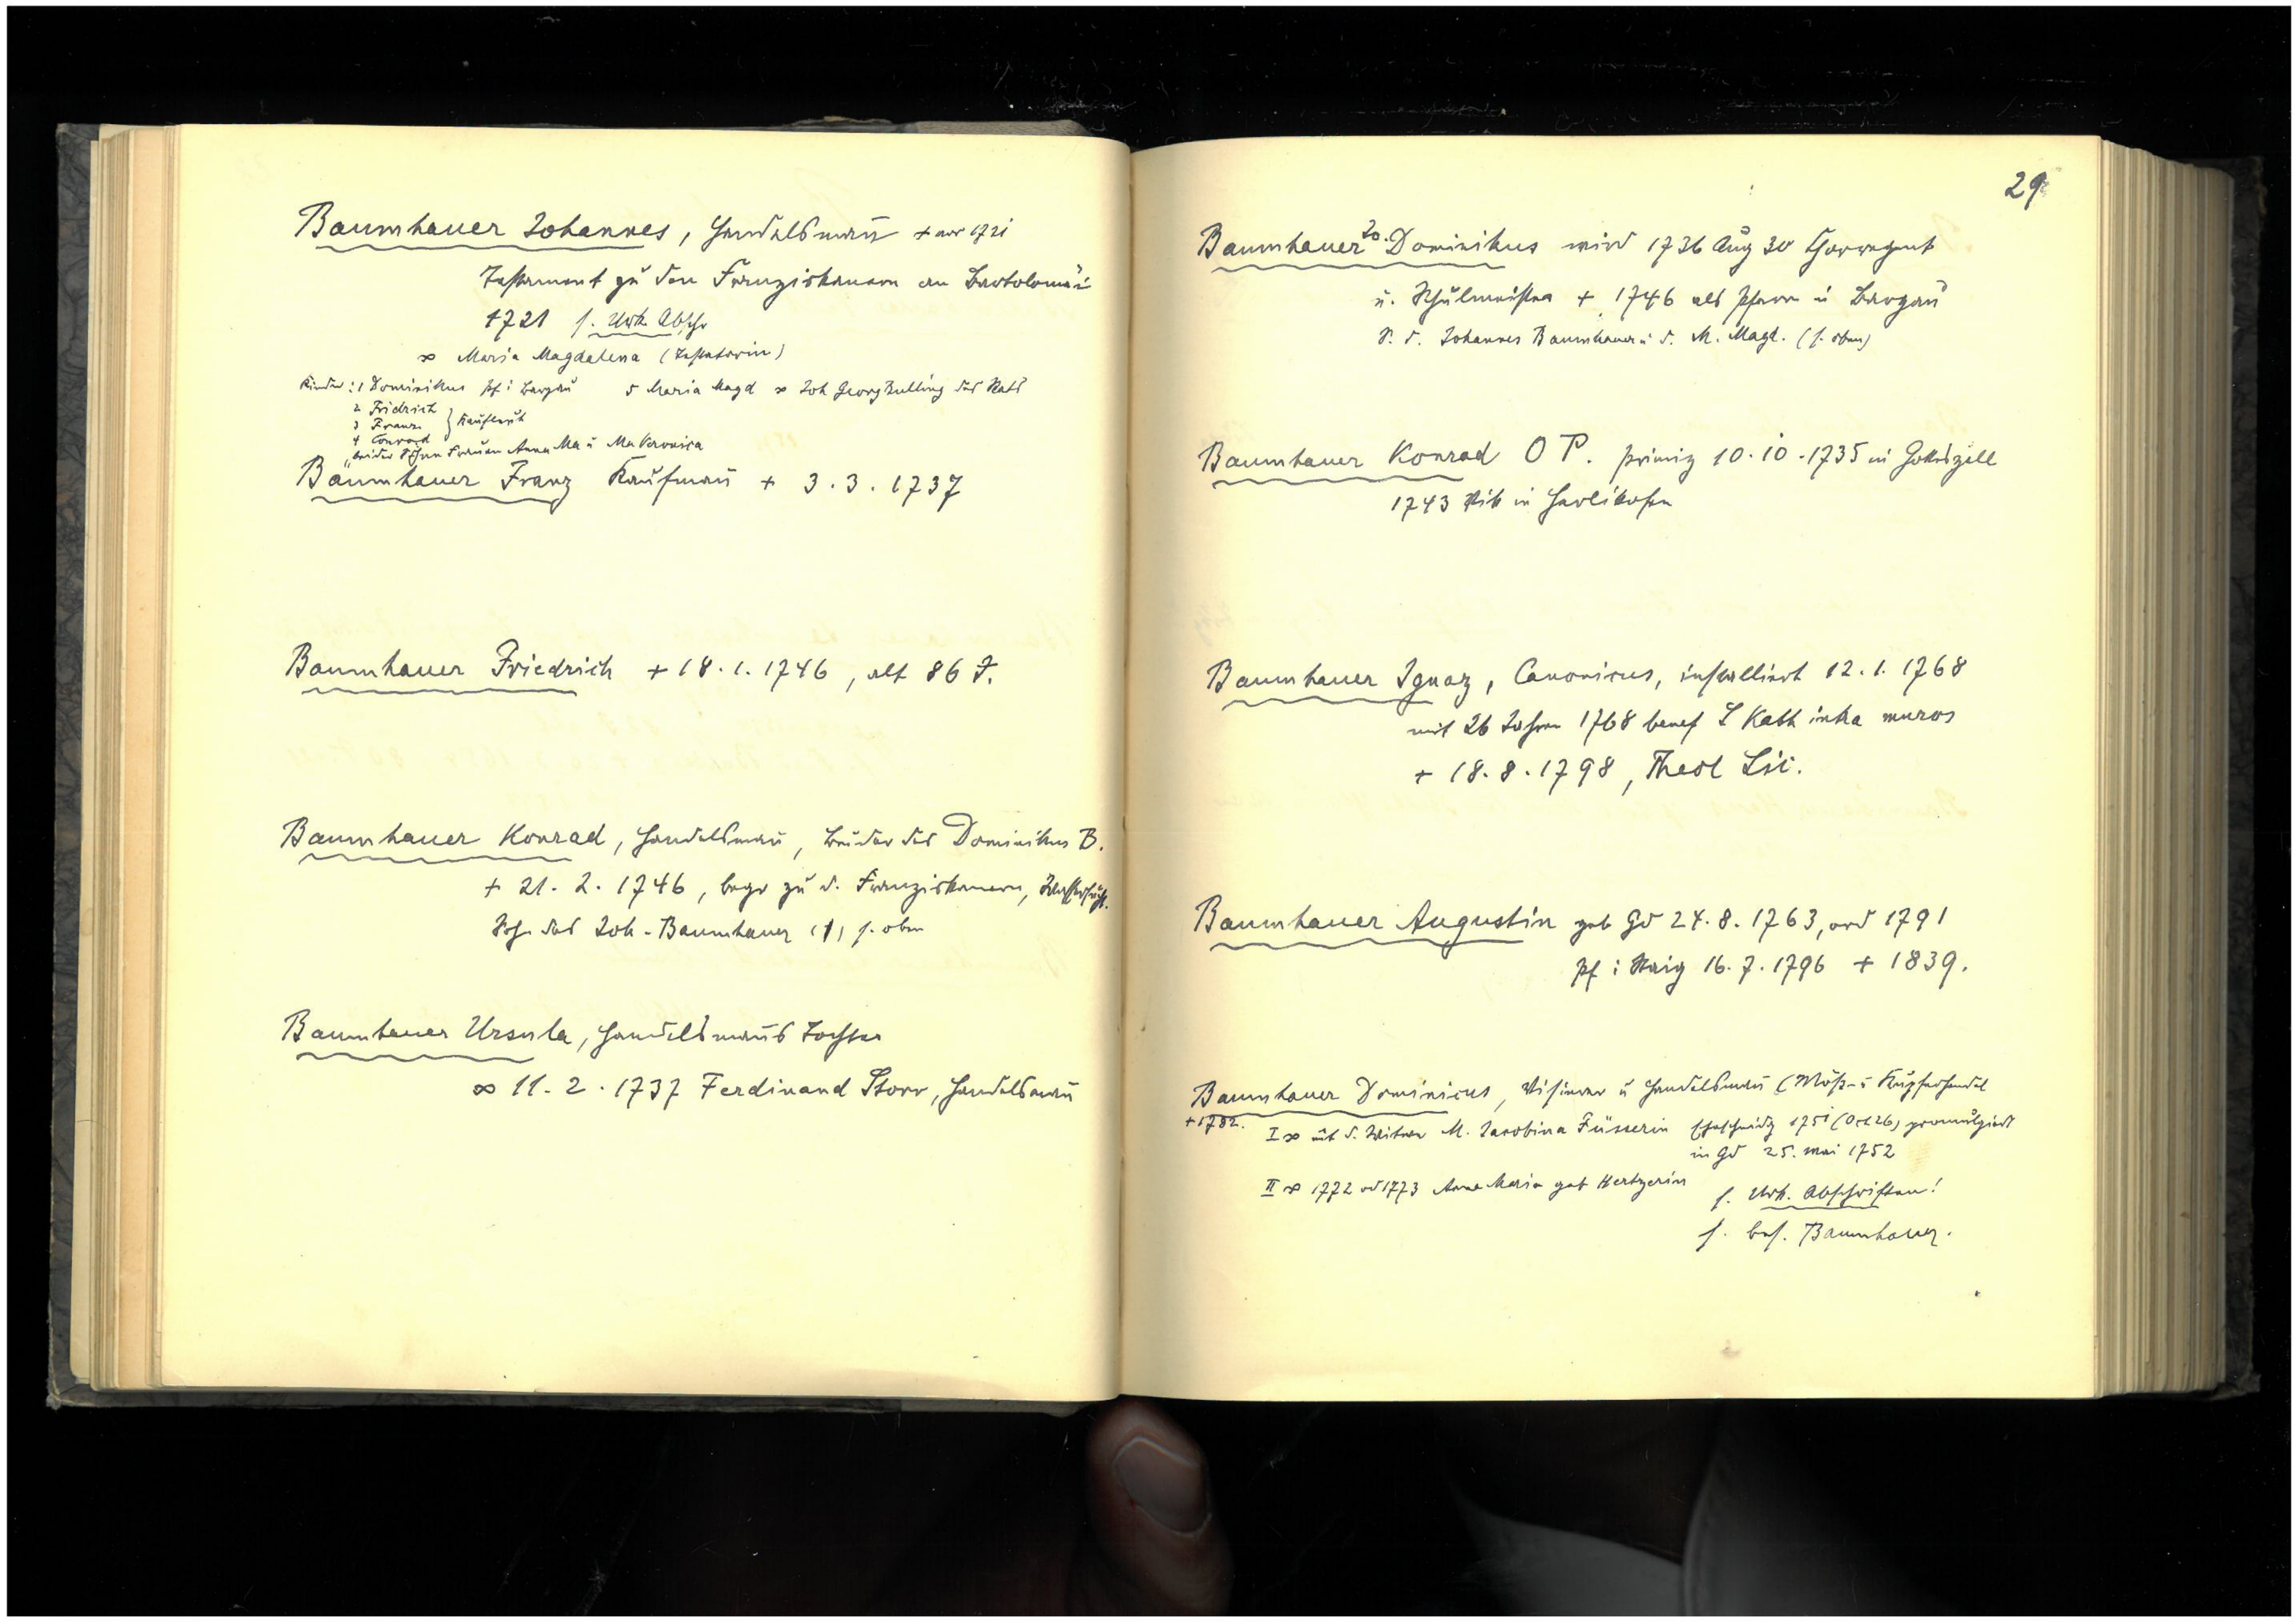 Baumhauer Johannes, Handelsmann + vor 1721
Testament zu den Franziskanern an Bartolomäi
1721 s. Urk. Abschr
∞ Maria Magdalena (Testatorin)
Kinder: 1 Dominikus Pf i Bargau 5 Maria Magd ∞ Joh Georg des Rats
2 Fridrich
3 Franz } Kaufleut
4 Conrad
beider Frauen Anna Ma u Ma Veronica
Baumhauer Franz Kaufmann + 3.3.1737
Baumhauer Friedrich + 18.1.1746, alt 86 J.
Baumhauer Konrad, Handelsmann, Bruder des Dominikus B.
+ 21.2.1746, begr zu d. Franziskanern, Wassersucht.
Sohn des Joh. Baumhauer (1) s. oben
Baumhauer Ursula, Handelsmanns Tochter
∞ 11.2.1737 Ferdinand Storr, Handelsmann
29
Baumhauer Jo. Dominikus wird 1736 Aug 30 Chorregent
u. Schulmeister + 1746 als Pfarrer in Bargau
S. d. Johannes Baumhauer u. d. M. Magd. (s. oben)
Baumhauer Konrad O P. Primiz 10.10.1735 in Gotteszell
1743 Vik in Herlikofen
Baumhauer Ignaz, Canonicus, installiert 12.1.1768
mit 26 Jahren 1768 benef S Kath intra muros
+ 18.8.1798, Theol Lic.
Baumhauer Augustin geb Gd 24.8.1763, ord 1791
Pf i Straßdorf 16.7.1796 + 1839.
Baumhauer Dominicus, Visierer u Handelsmann (Meß- u Kupferhandel
+ 1782. I ∞ mit d. Witwe M. Jacobina Füsserin Ehescheidg 1751 (Oct 26) promulgiert
in Gd 25. Mai 1752
II ∞ 1772 od 1773 Anna Maria geb Hertzerin
s. Urk. Abschriften!
s. bes. Baumhauer.